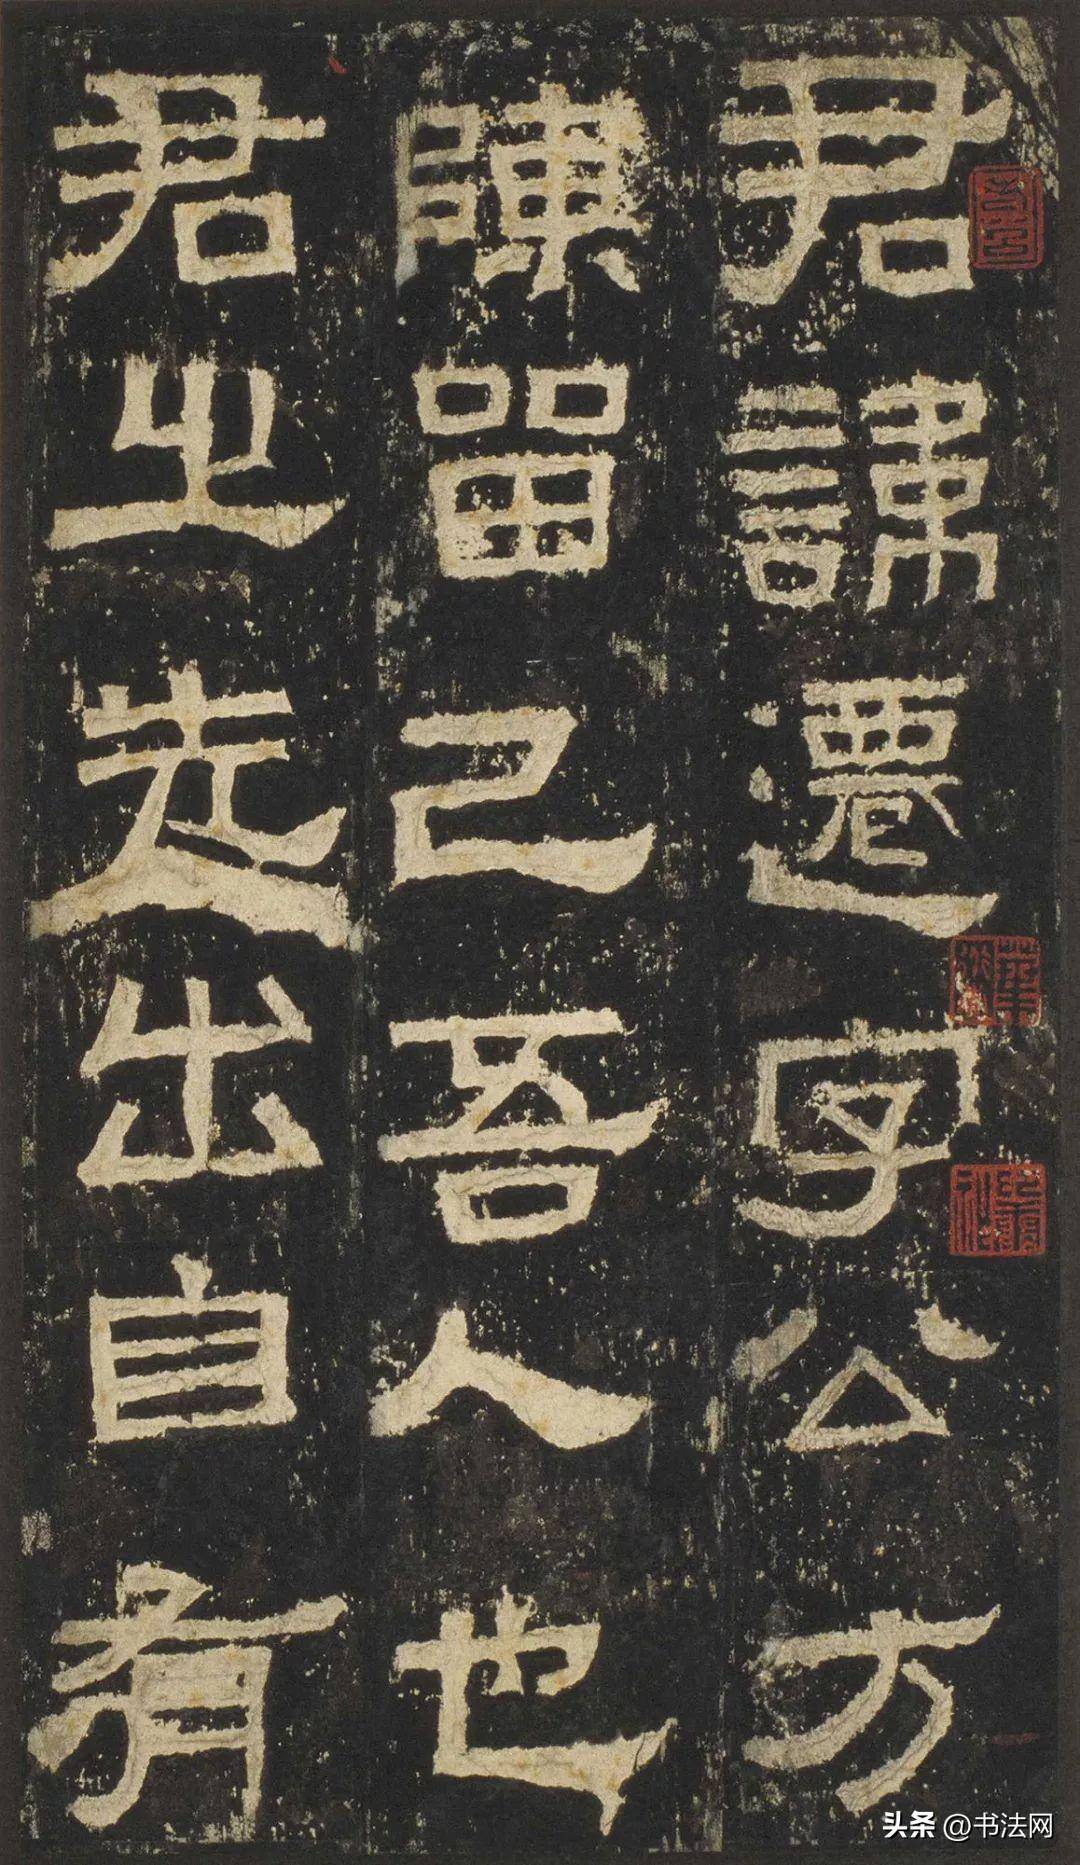 君諱遷字公方
陳留己吾人也
君之先出自有
头条 @书法网